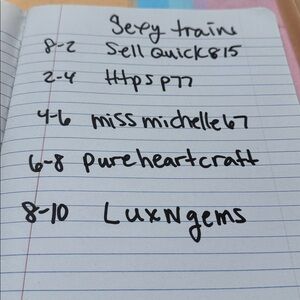 Sexy train
8-2 Sell Quick815
2-4 Httpsp77
4-6 missmichelle67
6-8 pureheartcraft
8-10 LuxNgems